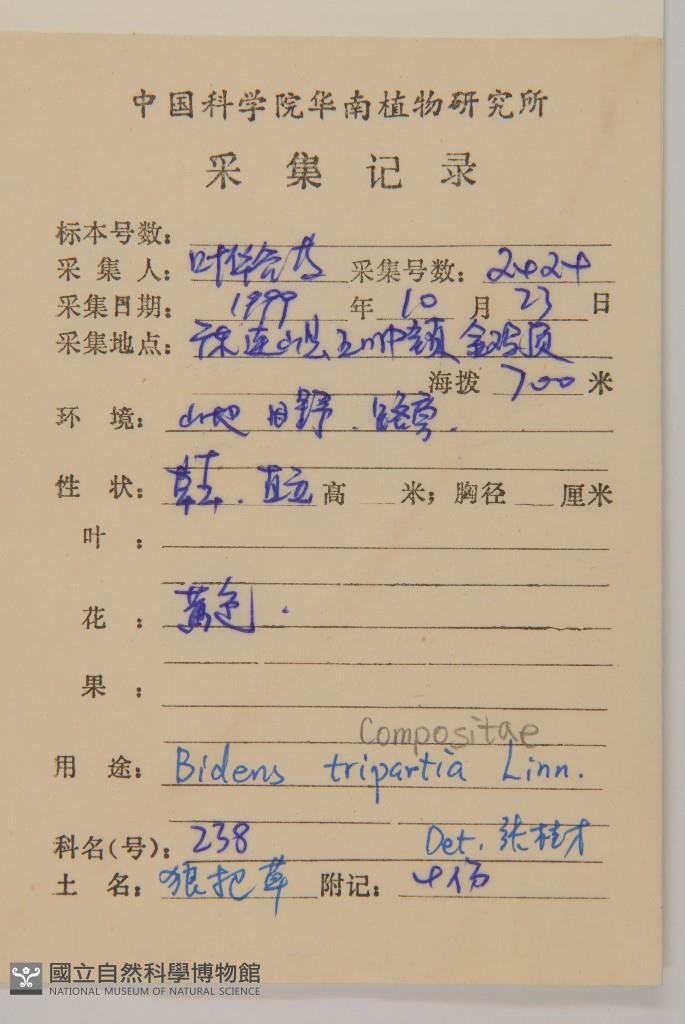 中国科学院华南植物研究所
采集记录
标本号数:
采集人: 叶华谷 采集号数: 2424
采集日期: 1999 年 10 月 23 日
采集地点: 连山县 金鸡顶
海拨 700 米
环境: 山地 田野. 路旁.
性状: 草本. 直立 高 米; 胸径 厘米
叶:
花: 黄色.
果:
Compositae
用途: Bidens tripartia Linn.
科名(号): 238 Det. 张桂才
土名: 狼把草 附记: 4份
國立自然科學博物館
NATIONAL MUSEUM OF NATURAL SCIENCE